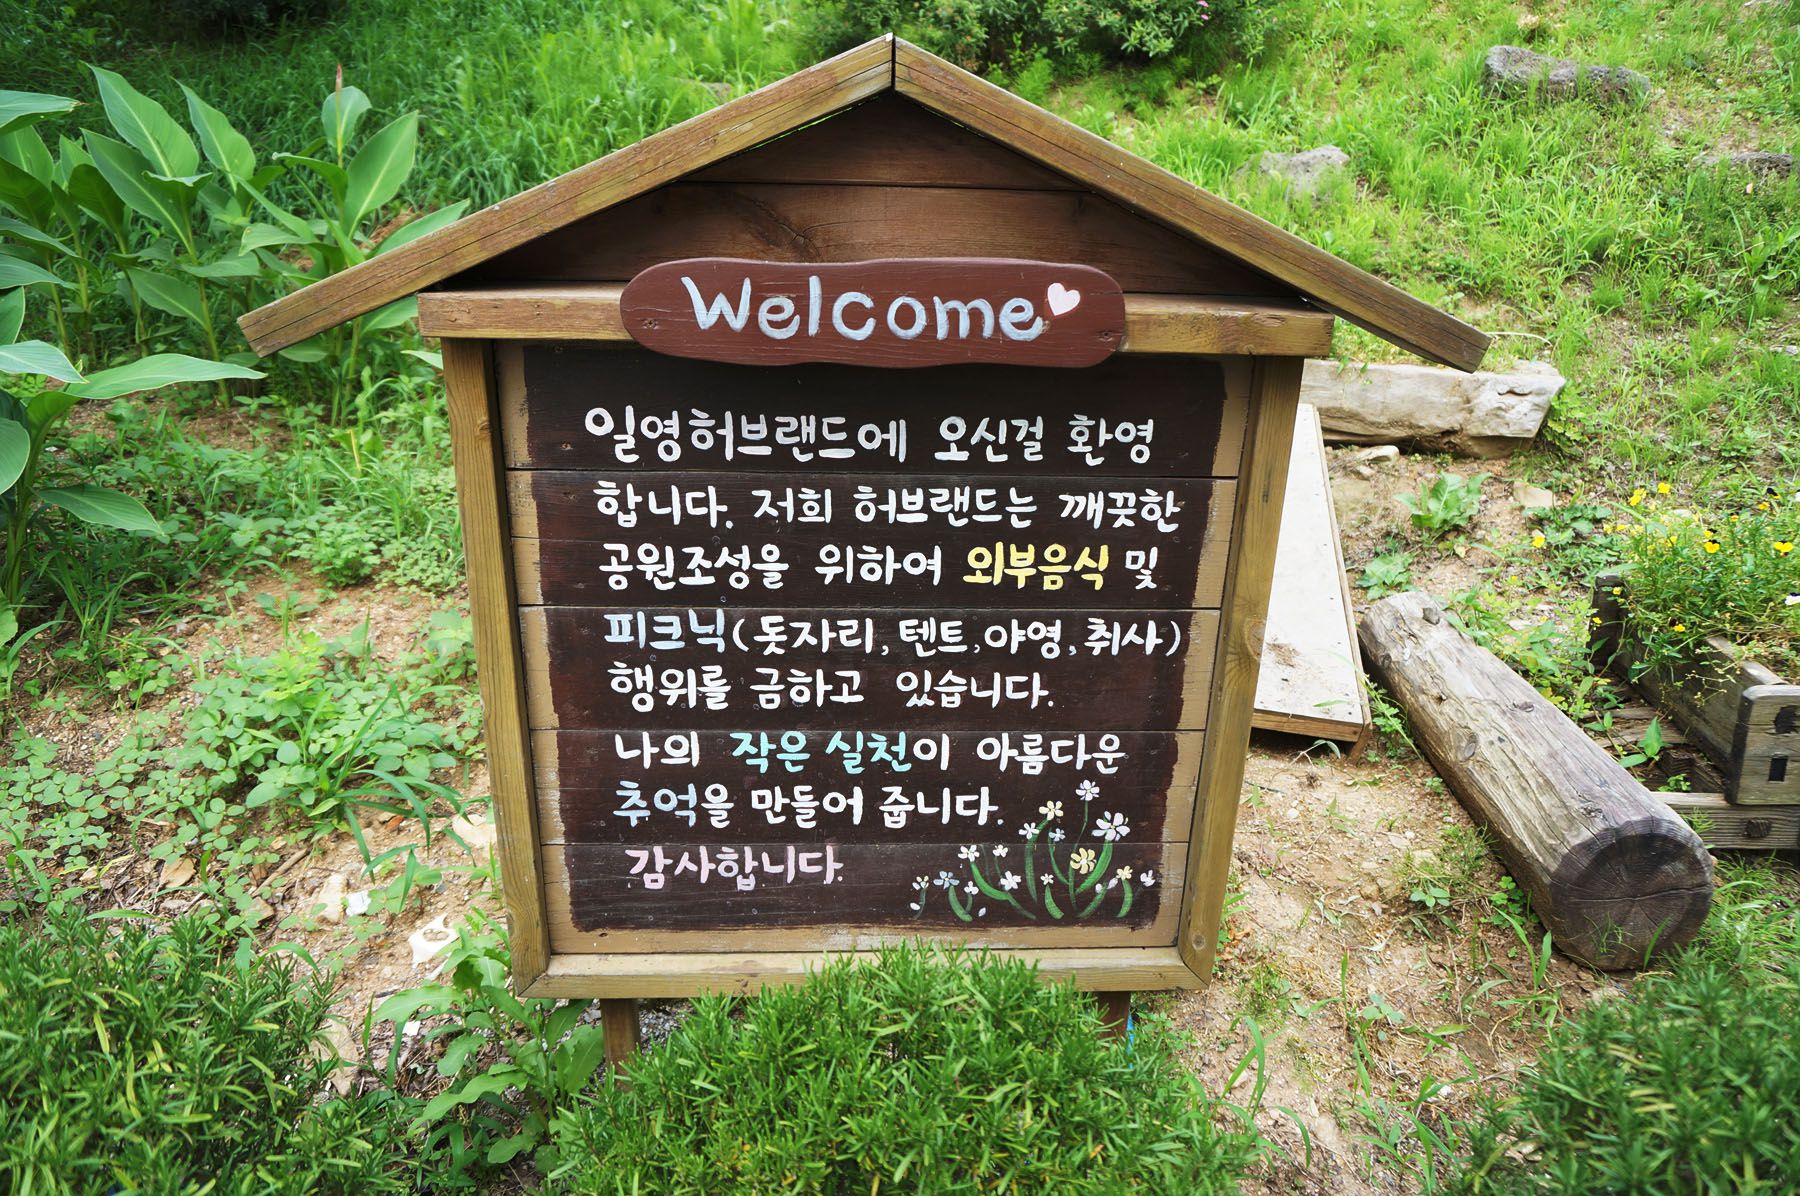 Welcome
일영허브랜드에 오신걸 환영
합니다. 저희 허브랜드는 깨끗한
공원조성을 위하여 외부음식 및
피크닉(돗자리, 텐트, 야영, 취사)
행위를 금하고 있습니다.
나의 작은 실천이 아름다운
추억을 만들어 줍니다.
감사합니다.